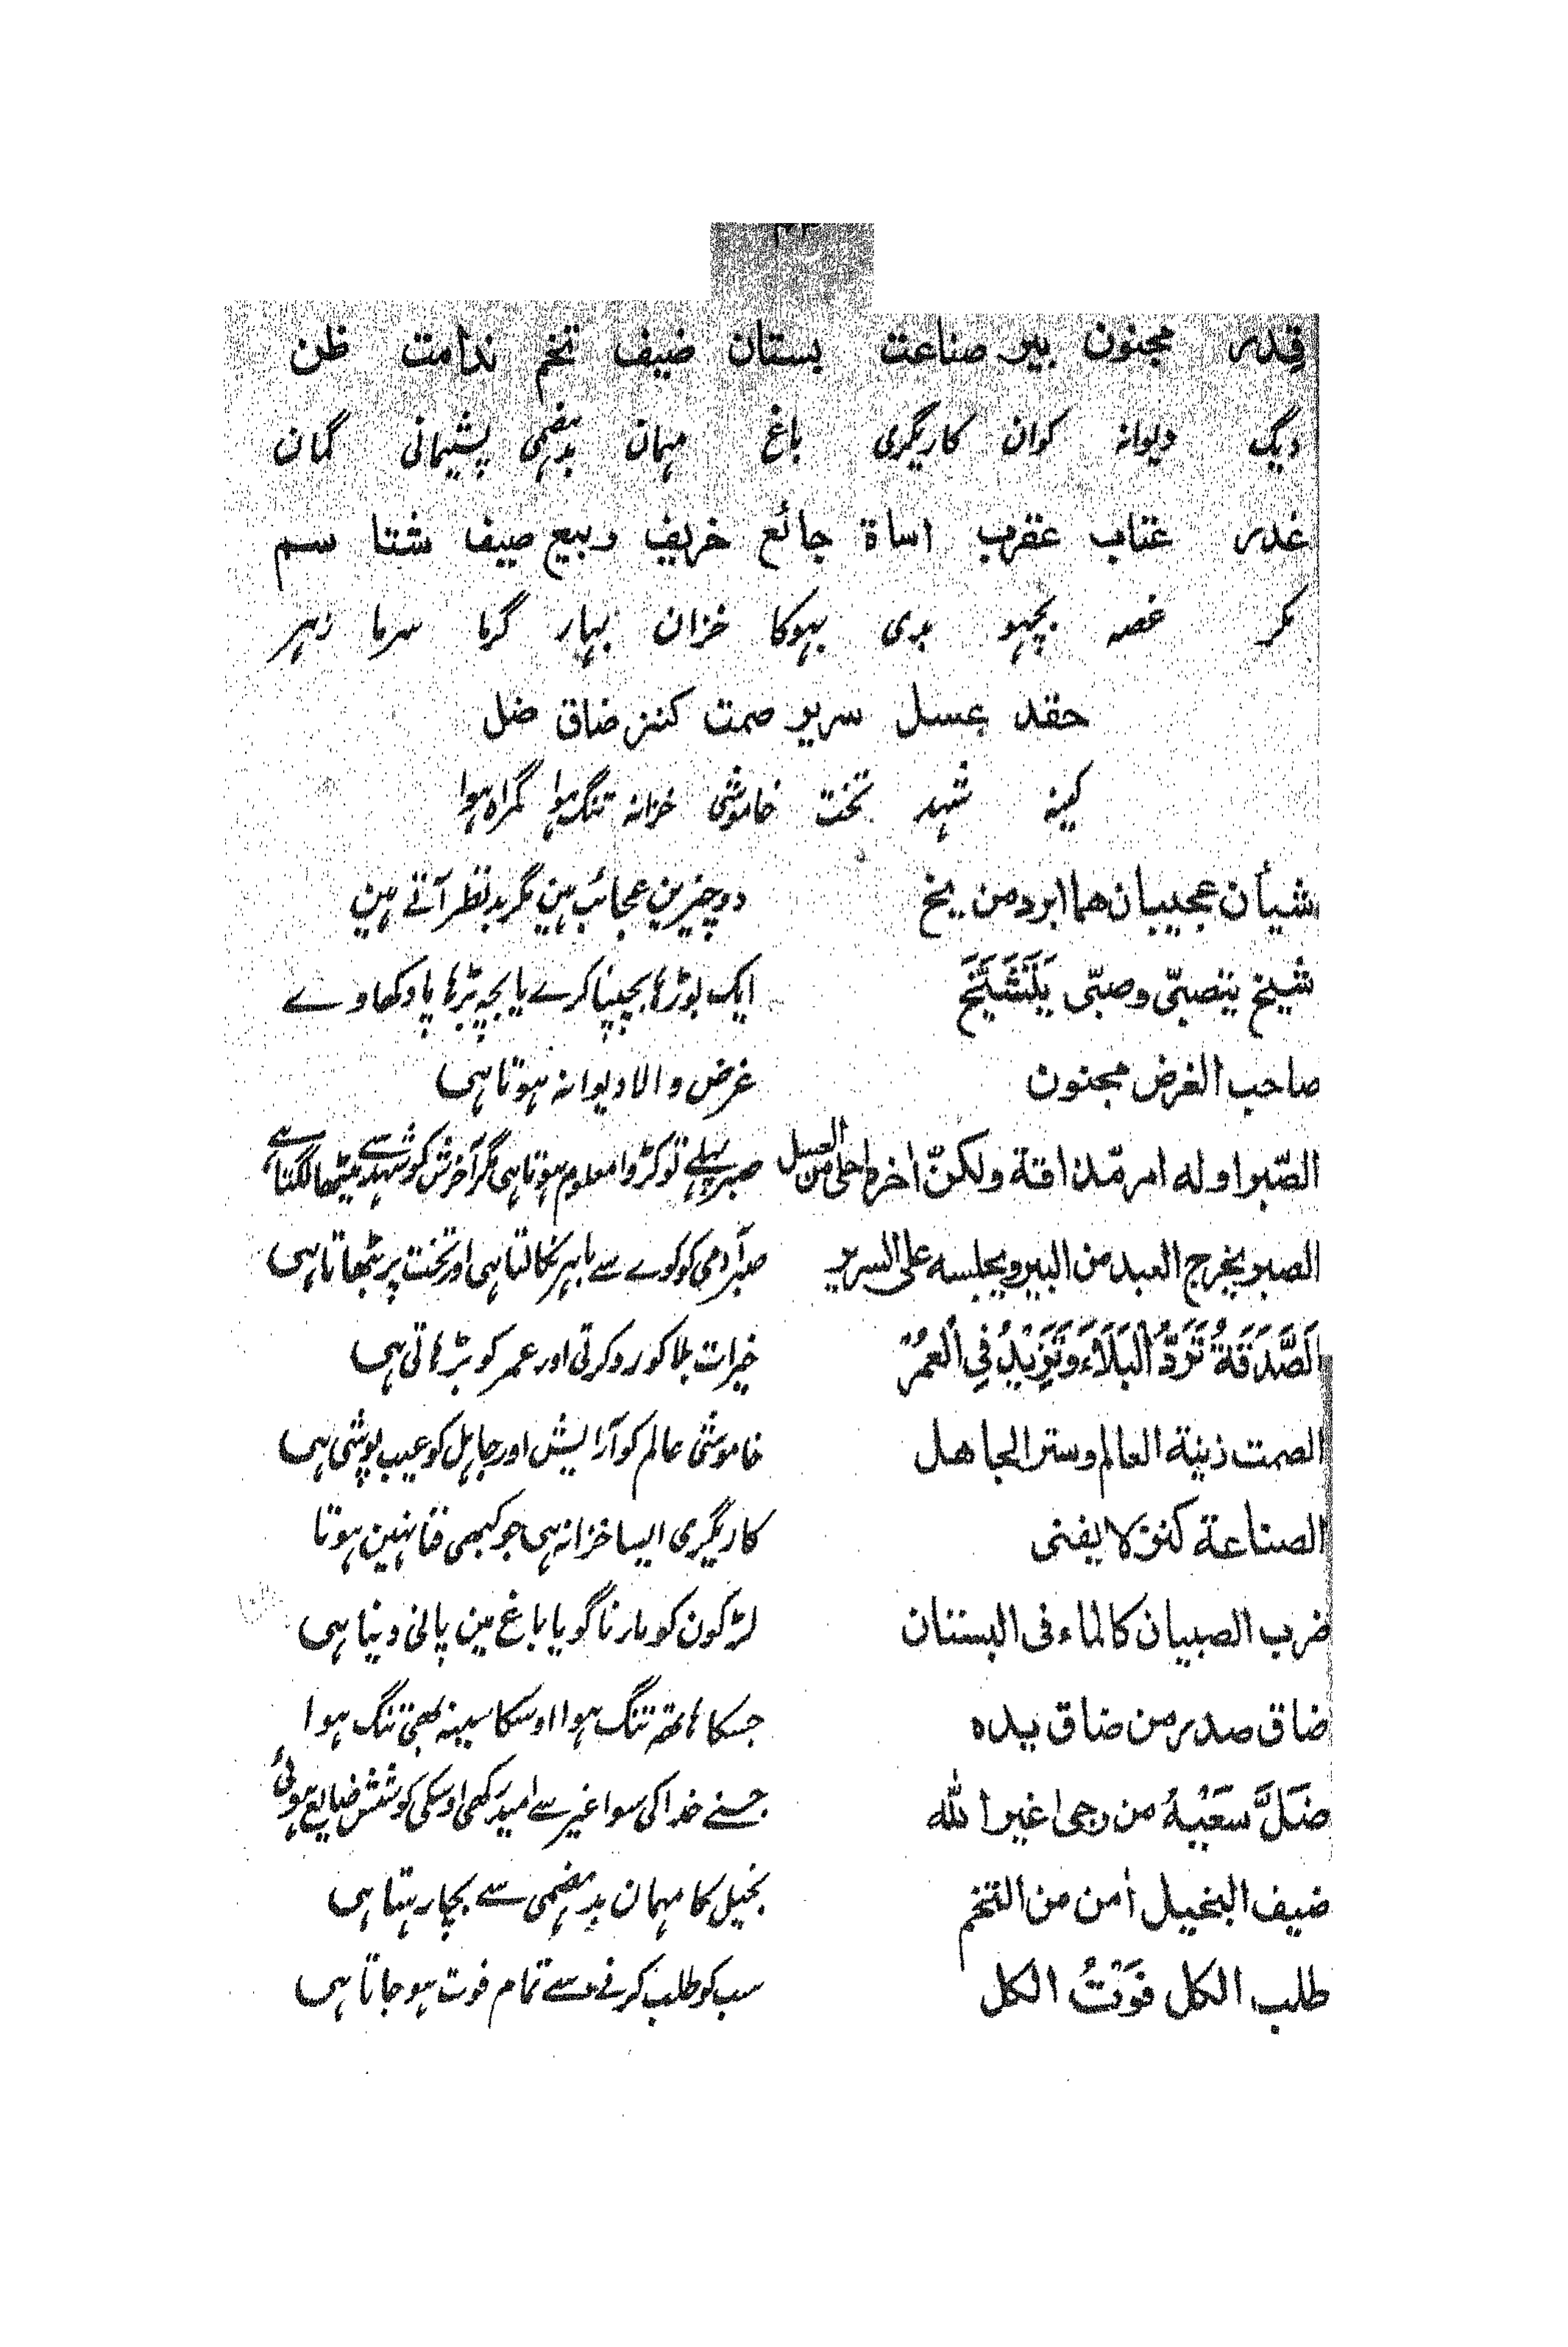 قِدر مجنون بیر صناعت بستان ضیف تخم ندامت ظن
دیگ دیوانہ کوان کاریگری باغ مہمان بدہضمی پشیمانی گمان
غدر عتاب عقرب اساۃ جائع خریف ربیع صیف شتا سم
مکر غصہ بچہو بدی بہوکا خزان بہار گرما سرما زہر
حقد عسل سریر صمت کنز ضاق ضل
کینہ شہد تخت خاموشی خزانہ تنگ ہوا گمراہ ہوا
شیأن عجیبان هما ابرد من یخ دو چیزین عجائب ہین مگر بد نظر آتے ہین
شیخ یتصبّی وصبّی یَتَشَیَّخَ ایک بوڑہا بچپنا کرے یا بچہ بڑہاپا دکھاوے
صاحب الغرض مجنون غرض والا دیوانہ ہوتا ہی
الصّبر اوله امر مّذاقة ولکنّ اٰخره احلی من العسل صبر پہلے تو کڑوا معلوم ہوتا ہی مگر آخرش کو شہد سے میٹھا لگتا ہے
الصبر یخرج العبد من البیر ویجلسه علی السریر صبر آدمی کو کوے سے باہر نکالتا ہی اور تخت پر بٹھاتا ہی
اَلصَّدَقَةُ تَرَدُّ الْبَلَاءَ وَتَزِیْدُ فِی الْعُمُرْ خیرات بلا کو رد کرتی اور عمر کو بڑہاتی ہی
الصمت زینة العالم وستر الجاهل خاموشی عالم کو آرایش اور جاہل کو عیب پوشی ہی
الصناعة کنز لا یفنی کاریگری ایسا خزانہ ہی جو کبھی فنا نہین ہوتا
ضرب الصبیان کالماء فی البستان لڑکون کو مارنا گویا باغ مین پانی دینا ہی
ضاق صدر من ضاق یده جسکا ہاتھ تنگ ہوا اوسکا سینہ بھی تنگ ہوا
ضَلَّ سَعْیهُ من رجی اغیر الله جسنے خدا کی سوا غیر سے امید رکھی اوسکی کوشش ضایع ہوئی
ضیف البخیل اٰمن من التخم بخیل کا مہمان بدہضمی سے بچا رہتا ہی
طلب الکل فَوْتُ الکل سب کو طلب کرنے سے تمام فوت ہو جاتا ہی